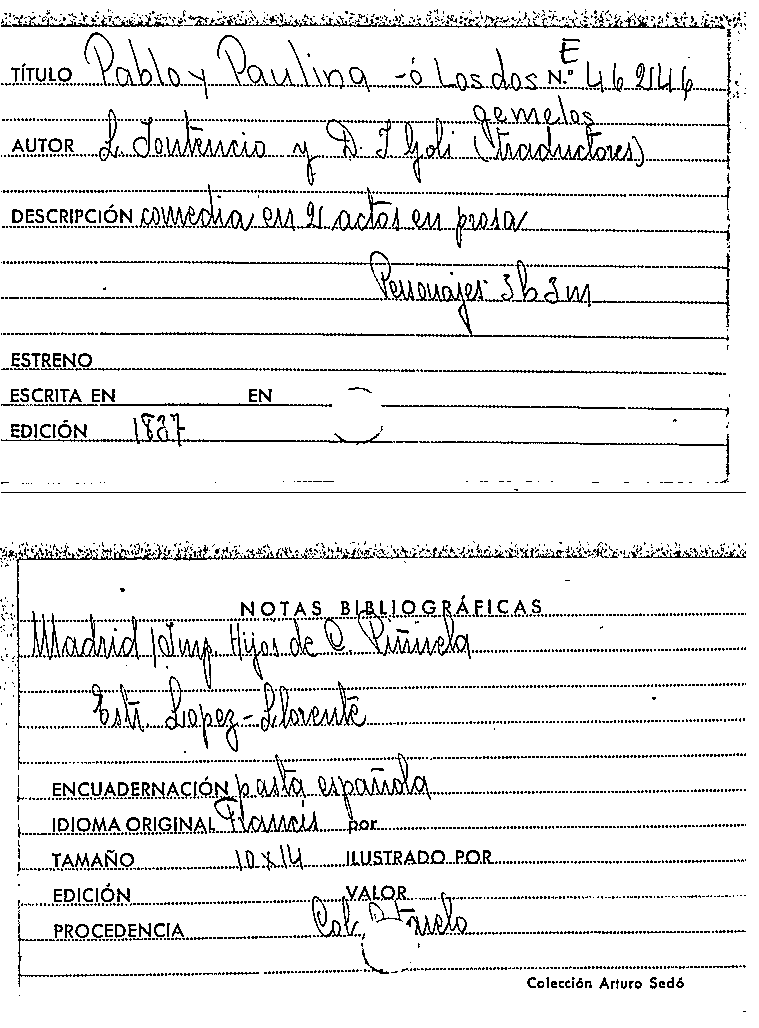 E
TÍTULO Pablo y Paulina - ó Los dos N.º 46246
gemelos
AUTOR L. y D. J Goli (traductores)
DESCRIPCIÓN comedia en 2 actos en prosa
Personajes 3h3m
ESTRENO
ESCRITA EN EN
EDICIÓN 1837
NOTAS BIBLIOGRÁFICAS
Madrid / Imp. Hijos de C. Piñuela
Estr. Lopez-Llorente
ENCUADERNACIÓN pasta española
IDIOMA ORIGINAL Francés por
TAMAÑO 10 x 14 ILUSTRADO POR
EDICIÓN VALOR
PROCEDENCIA Col.
Colección Arturo Sedó